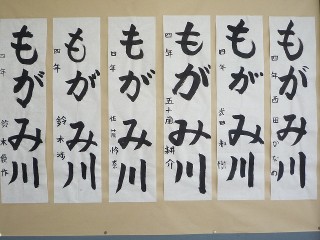 もがみ川
四年 西田ひなの
もがみ川
四年 武田
もがみ川
四年 五十嵐 耕介
もがみ川
四年 佐藤
もがみ川
四年 鈴木
もがみ川
四年 鈴木